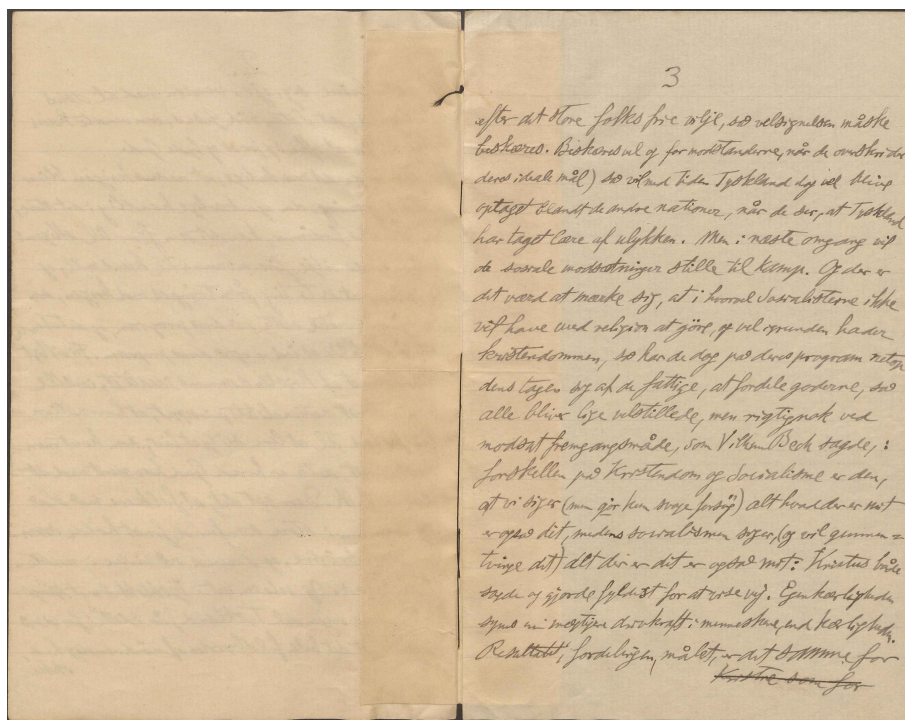 3
efter det store folks frie vilje, så velsignelsen måske
beskæres. Beskæres vel og for modstanderne, når de overskrider
deres ideale mål) så vil med tiden Tyskland dog vel blive
optaget blandt de andre nationer, når de ser, at Tyskland
har taget lære af ulykken. Men i næste omgang vil
de sociale modsætninger stille til kamp. Og der er
det værd at mærke sig, at i hvorvel Socialisterne ikke
vil have med religion at gøre, og vel i grunden hader
kristendommen, så har de dog på deres program netop
dens tagen sig af de fattige, at fordele goderne, så
alle bliver lige velstillede, men rigtignok ved
modsat fremgangsmåde, som Vilhem Beck sagde, :
forskellen på Kristendom og Socialisme er den,
at vi siger (men gør kun svage forsøg) alt hvad der er mit
er også dit, medens socialismen siger, (og vil gennem=
tvinge det) alt der er dit er også mit: Kristus både
sagde og gjorde fyldest for at vise vej. Egenkærligheden
synes en mægtigere drivkraft i menneskene, end kærligheden.
Resultatet, fordelingen, målet, er det samme for
Kristne som for